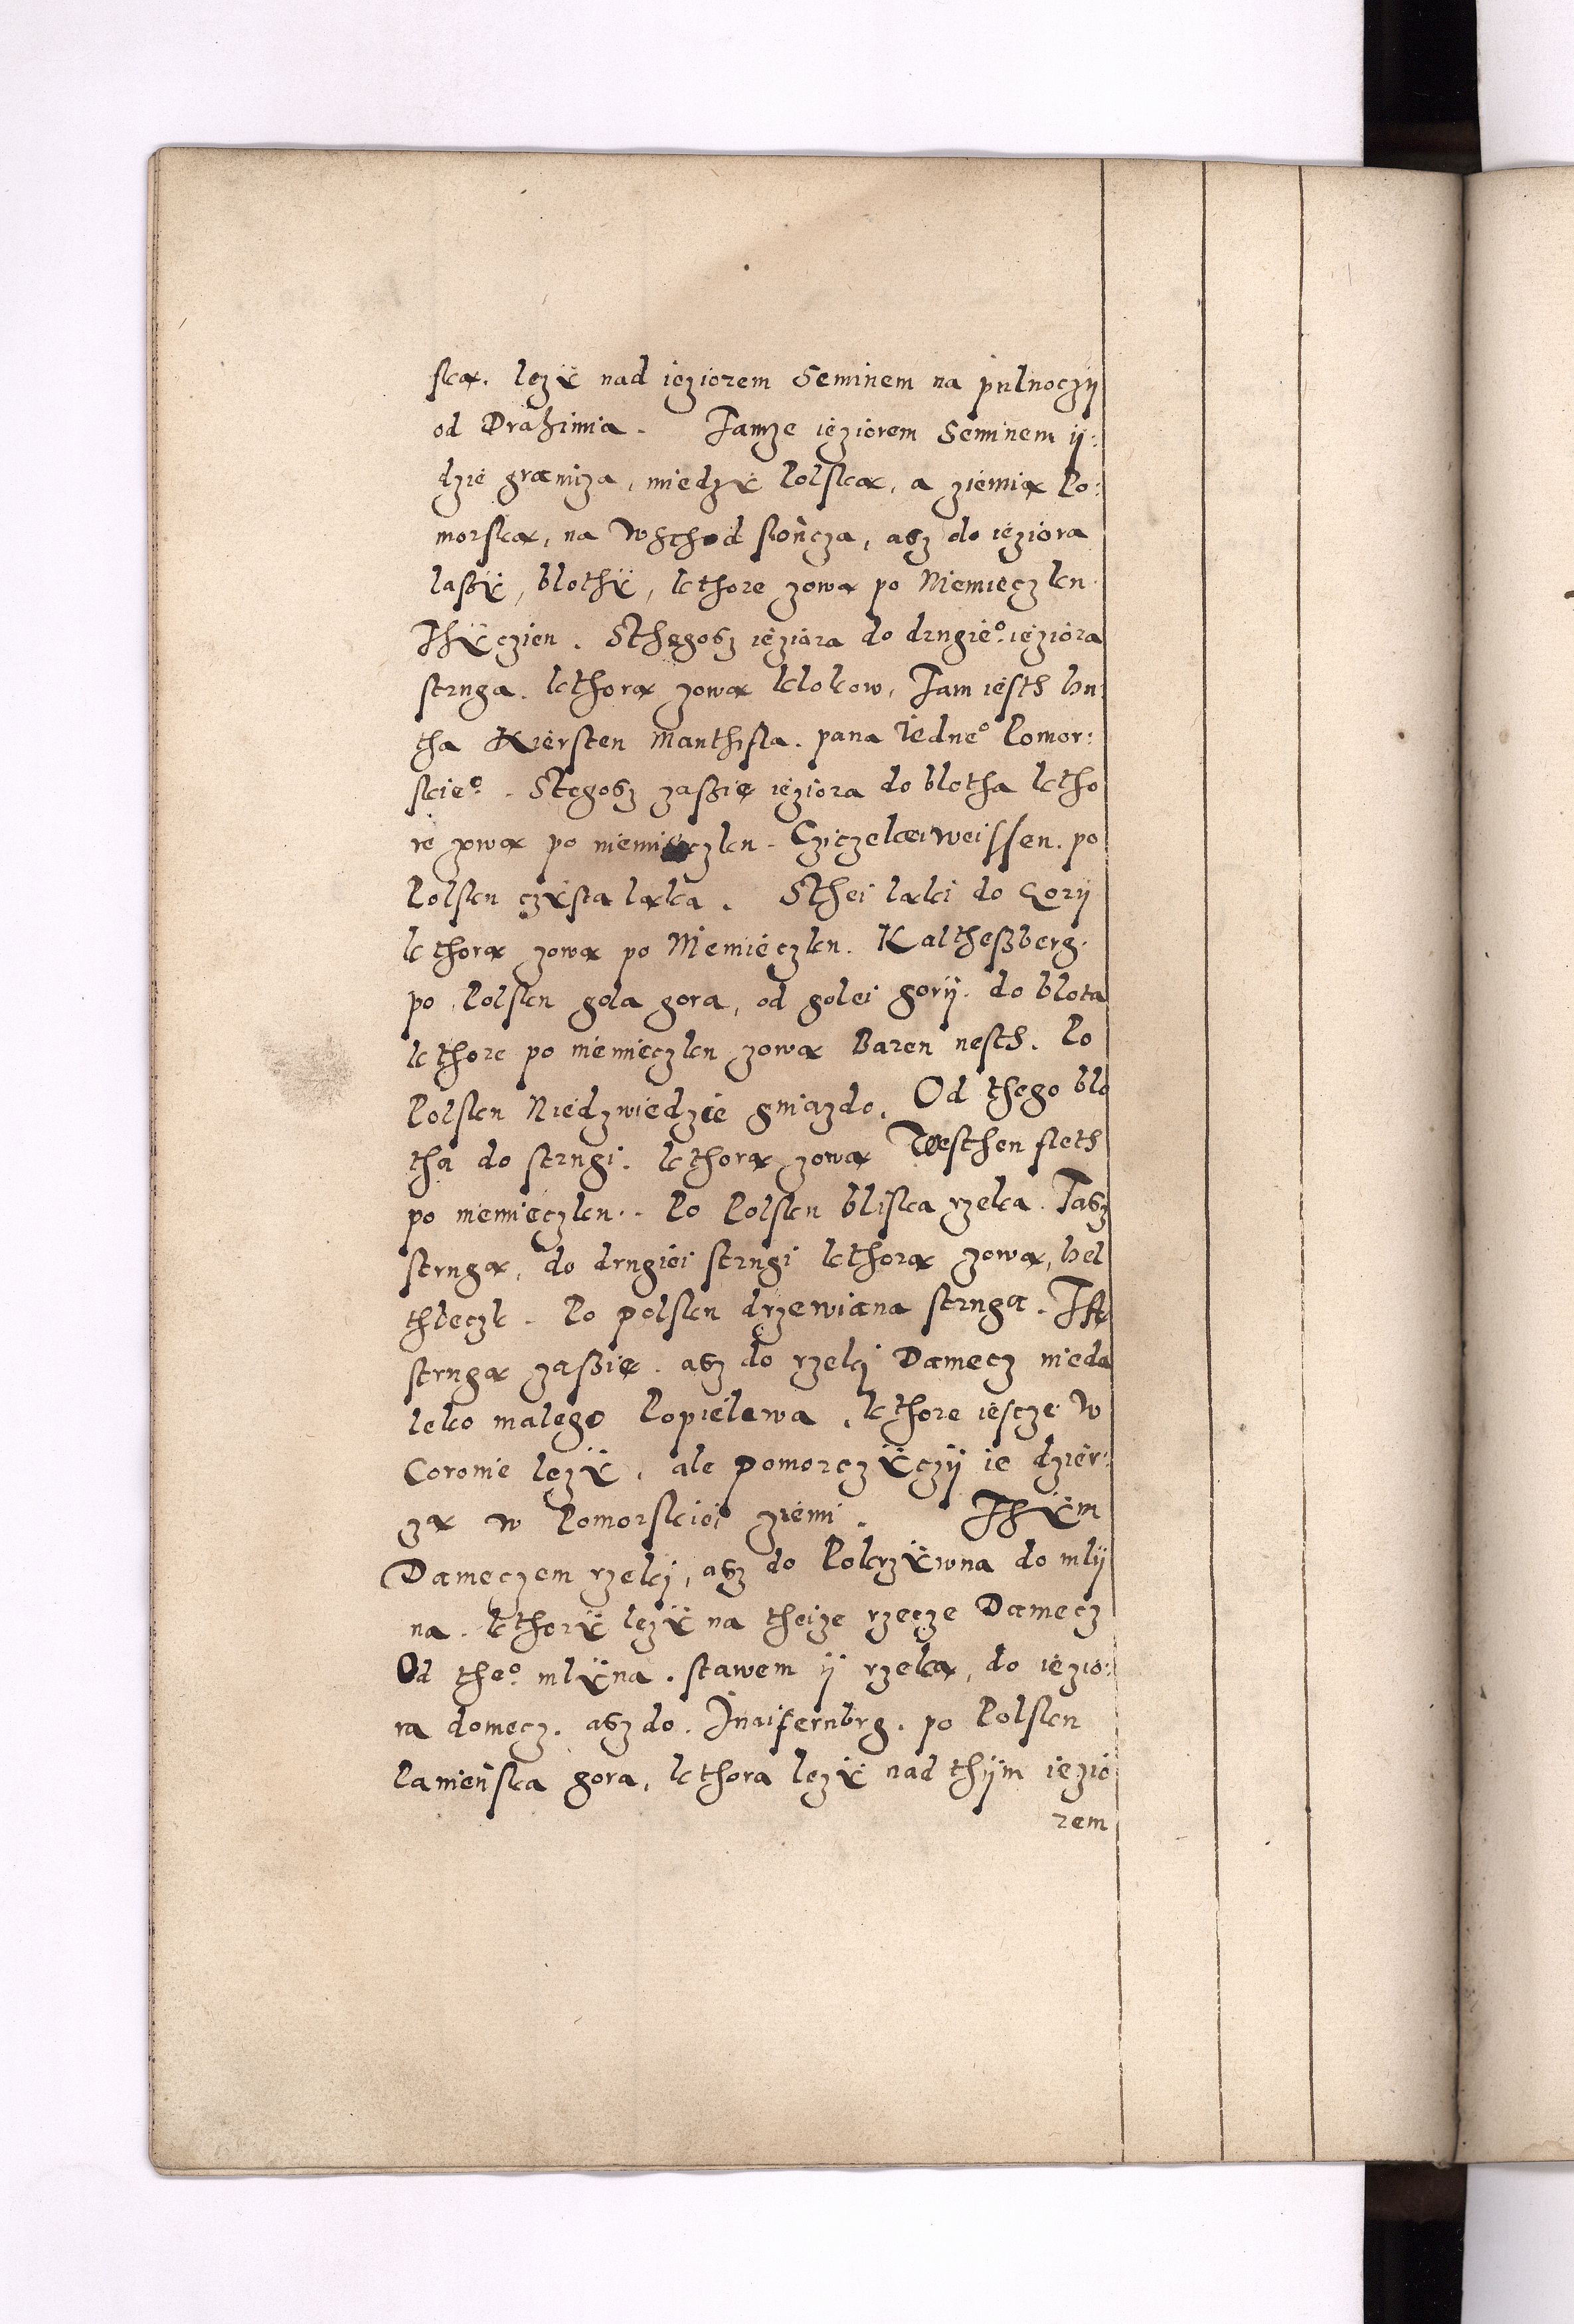 ską. lezÿ nad ieziorem Seminem na pulnoczÿ
od Drahimia. Tamze ieziorem Seminem ÿ:
dzie graniza, miedzÿ Polską, a ziemią Po:
morską, na Wschod słończa, asz do ieziora
laßÿ, blothÿ, kthore zową po Niemieczku
Thÿczien. Sthegosz ieziora do drugie° ieziora
struga. kthorą zową klokow, Tam iesth bu:
tha Kiersten Manthifla. pana Iedne° Pomor:
skie°. Stegosz zaßię ieziora do blotha ktho
re zową po niemieczku. Cziczekeiweissen. po
Polsku czÿsta ląka. Sthei ląki do Gorÿ
kthorą zową po Niemieczku. Kaltheßberg.
po Polsku gola gora, od golei gorÿ. do blota
kthore po niemieczku zową Baren nesth. Po
Polsku Niedzwiedzie gniazdo. Od thego blo
tha do strugi. kthorą zową Weschen flieth
po niemieczku. Po Polsku bliska rzeka. Tasz
strugą, do drugiei strugi kthorą zową, hel
thbeczk. Po polsku drzewiana struga. Thą
strugą zaßię. asz do rzeki Damecz nieda
leko malego Popielewa, kthore iescze w
Coronie lezÿ, ale Pomorczÿczÿ ie dzier:
zą w Pomorskiei ziemi. Thÿm
Dameczem rzeki, asz do Pokrzÿwna do mlÿ
na. kthorÿ lezÿ na theize rzecze Damecz
Od the° mlÿna. stawem ÿ rzeką, do iezio:
ra domecz. asz do. Inaifernbrg. po Polsku
kamieńska gora, kthora lezÿ nad thÿm iezio
rem